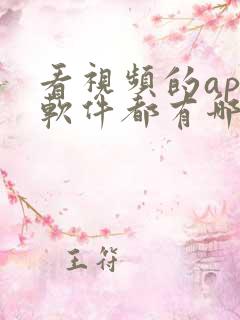 看視頻的ap
軟件都有哪
王符